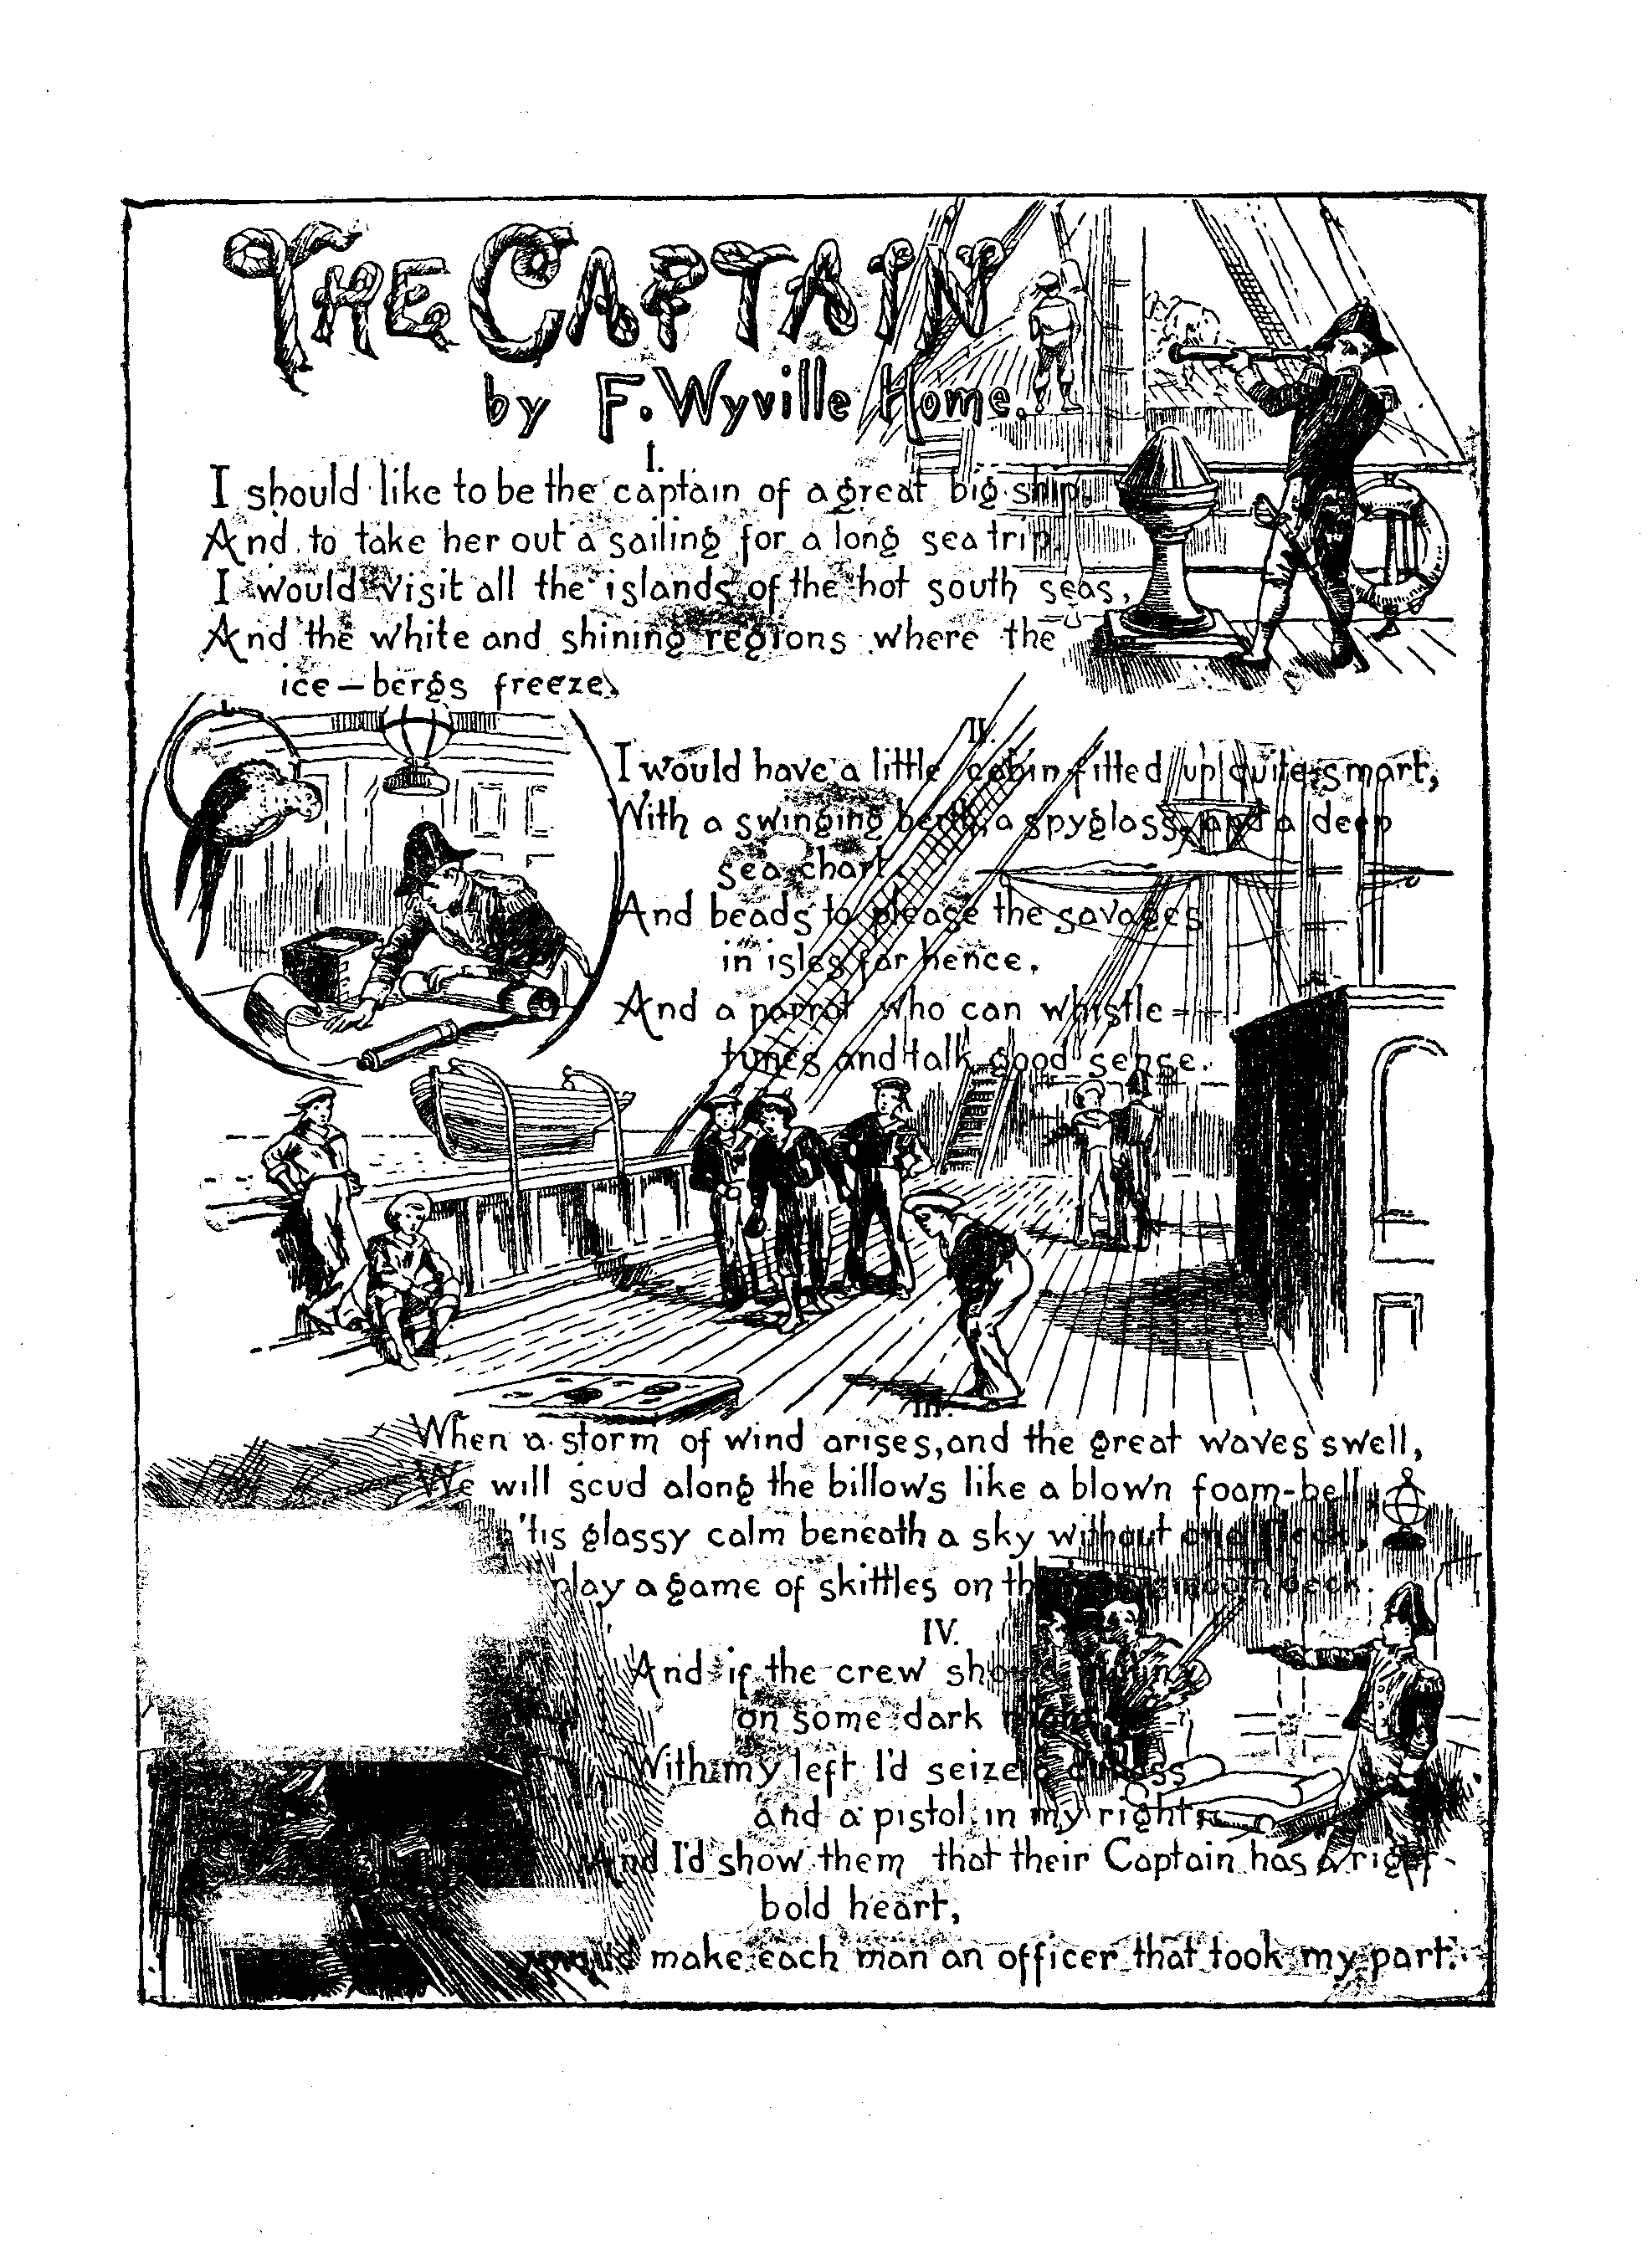 THE CAPTAIN
by F. Wyville Home.
I.
I should like to be the captain of a great big ship,
And to take her out a sailing for a long sea trip,
I would visit all the islands of the hot south seas,
And the white and shining regions where the
ice-bergs freeze,
II.
I would have a little cabin fitted up quite smart,
With a swinging berth, a spyglass, and a deep
sea chart,
And beads to please the savages
in isles far hence,
And a parrot who can whistle
tunes and talk good sense.
III.
When a storm of wind arises, and the great waves swell,
We will scud along the billows like a blown foam-bell,
'tis glassy calm beneath a sky without one fleck,
play a game of skittles on the smooth deck.
IV.
And if the crew should mutiny
on some dark night,
With my left I'd seize a cutlass
and a pistol in my right,
And I'd show them that their Captain has a right
bold heart,
make each man an officer that took my part.